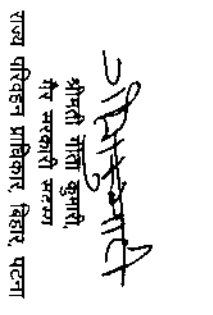 श्रीमती गीता कुमारी,
गैर सरकारी सदस्य
राज्य परिवहन प्राधिकार, बिहार, पटना